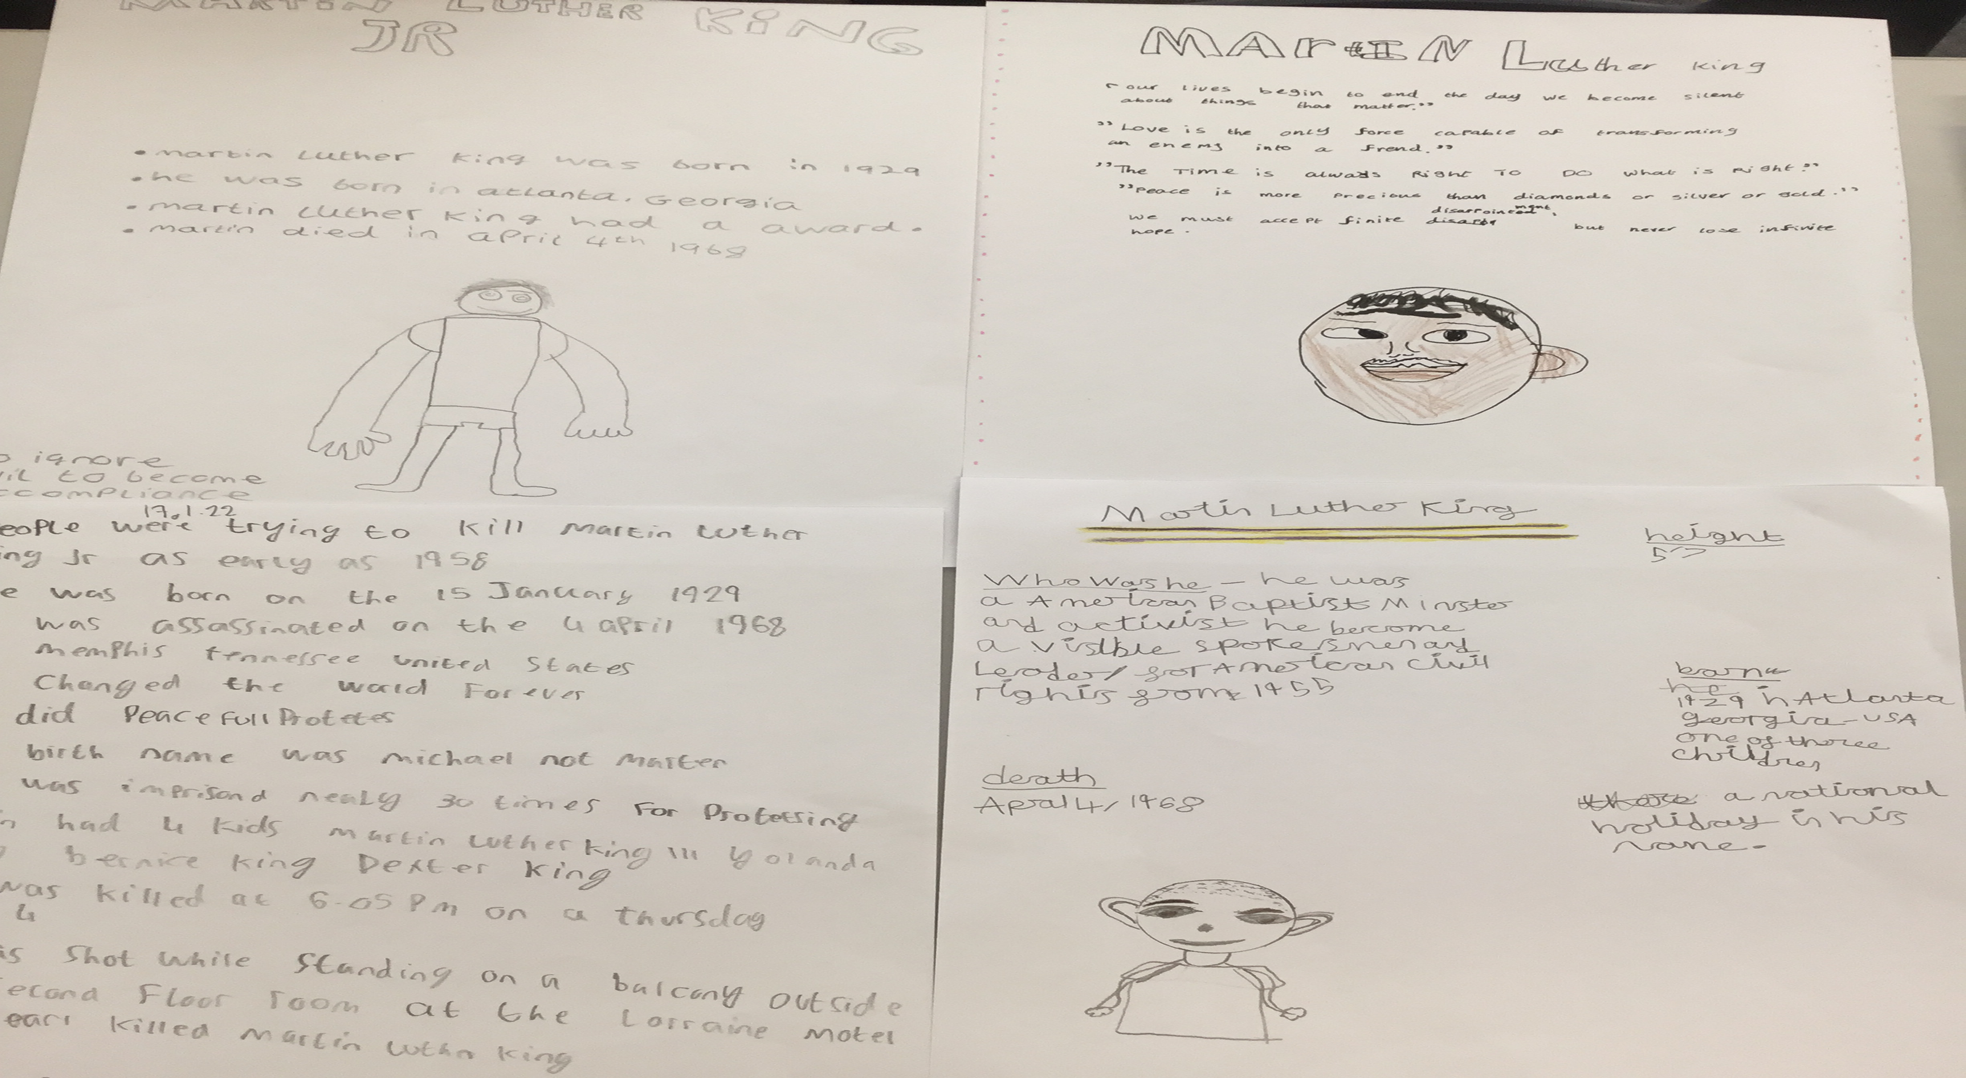 MARTIN LUTHER KiNG
JR
• martin Luther King was born in 1929
• he was born in atlanta, Georgia
• martin Luther King had a award.
• martin died in april 4th 1968
ignore
to become
ccompliance
MArtIN Luther king
"our lives begin to end the day we become silent
about things that matter."
"Love is the only force capable of transforming
an enemy into a frend."
"The Time is always Right To Do what is Right."
"Peace is more precious than diamonds or silver or gold."
disappointment,
we must accept finite but never lose infinite
hope.
17.1.22
eople were trying to kill Martin Luther
ing Jr as early as 1958
e was born on the 15 January 1929
was assassinated on the 4 april 1968
memphis tennessee united States
Changed the world Forever
did PeaceFull Protetes
birth name was michael not Marten
was imprisond nealy 30 times For Protetsing
had 4 kids Martin Luther king III Yolanda
bernice king Dexter king
was killed at 6.05 Pm on a thursday
4
is Shot While Standing on a balcony outside
econd Floor room at the Lorraine Motel
earl killed Martin Luthn king
Martin Luther King
height
5'7
Who Was he - he was
a American Baptist Minster
and activist he become
a visible spokesmen and
Leader for American Civil
rights from 1955
born
1929 in Atlanta
georgia - USA
one of three
children
death
April 4, 1968
a national
holiday in his
name.